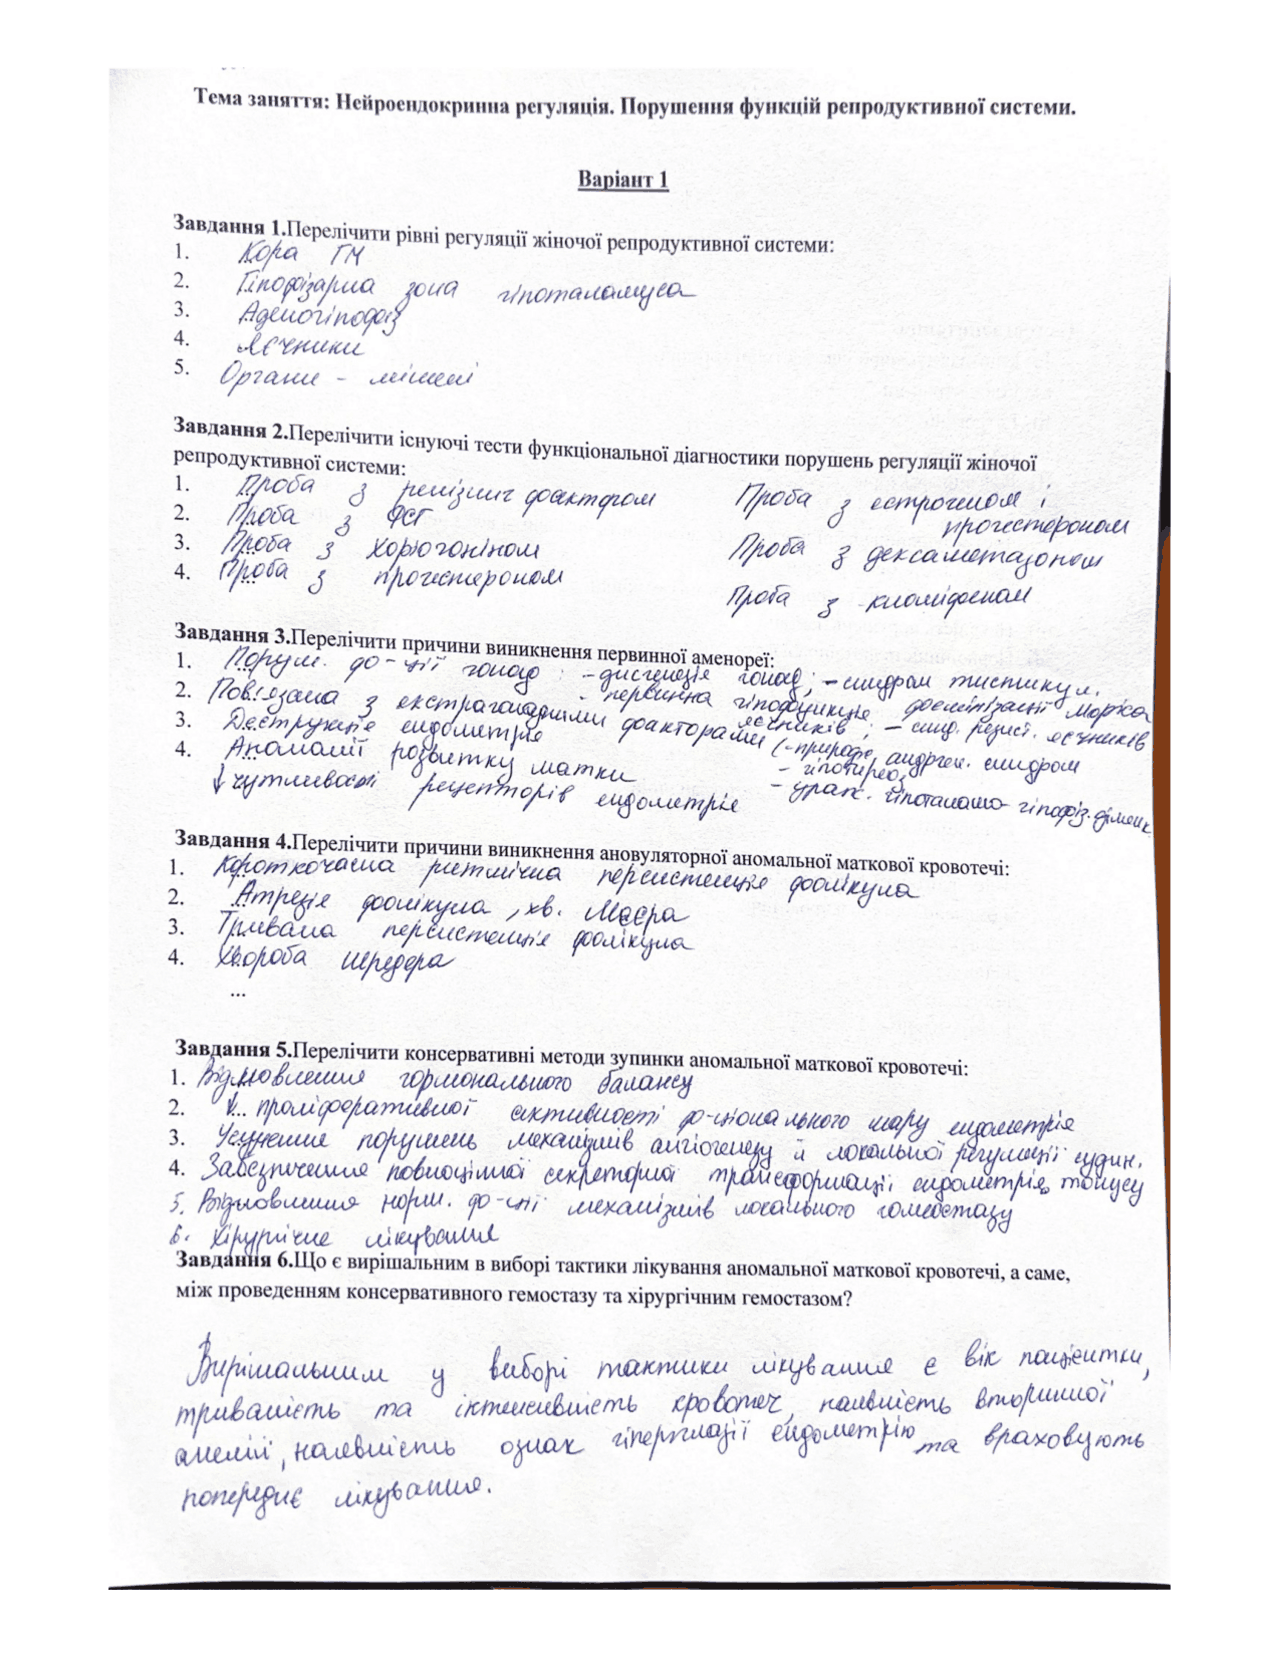 Тема заняття: Нейроендокринна регуляція. Порушення функцій репродуктивної системи.
Варіант 1
Завдання 1.Перелічити рівні регуляції жіночої репродуктивної системи:
1. Кора ГМ
2. Гіпофізарна зона гіпоталамуса
3. Аденогіпофіз
4. Яєчники
5. Органи - мішені
Завдання 2.Перелічити існуючі тести функціональної діагностики порушень регуляції жіночої
репродуктивної системи:
1. Проба з релізинг фактором
2. Проба з ФСГ
3. Проба з хоріогоніном
4. Проба з прогестероном
Проба з естрогеном і
прогестероном
Проба з дексаметазоном
Проба з кломіфеном
Завдання 3.Перелічити причини виникнення первинної аменореї:
1. Поруш. ф-ції гонад: - дисгенезія гонад; - синдром тистикул.
2. Пов'язана з екстрагонадними факторами - первинна гіпофункція фемінізації Моріса
3. Деструкція ендометрія яєчників; - синд. резист. яєчників
4. Аномалії розвитку матки (- природж. андрген. синдром
- гіпотиреоз
↓ чутливості рецепторів ендометрія - ураж. гіпоталамо-гіпофіз. ділянк.
Завдання 4.Перелічити причини виникнення ановуляторної аномальної маткової кровотечі:
1. Короткочасна ритмічна персистенція фолікула
2. Атрезія фолікула, хв. Маєра
3. Тривала персистенція фолікула
4. Хвороба Шредера
...
Завдання 5.Перелічити консервативні методи зупинки аномальної маткової кровотечі:
1. Відновлення гормонального балансу
2. ↓ проліферативної активності ф-ціонального шару ендометрія
3. Усунення порушень механізмів ангіогенезу й локальної регуляції судин.
4. Забезпечення повноцінної секреторної трансформації ендометрія тонусу
5. Відновлення норм. ф-ції механізмів локального гомеостазу
6. Хірургічне лікування
Завдання 6.Що є вирішальним в виборі тактики лікування аномальної маткової кровотечі, а саме,
між проведенням консервативного гемостазу та хірургічним гемостазом?
Вирішальним у виборі тактики лікування є вік пацієнтки,
тривалість та інтенсивність кровотеч, наявність вторинної
анемії, наявність ознак гіперплазії ендометрію та враховують
попереднє лікування.